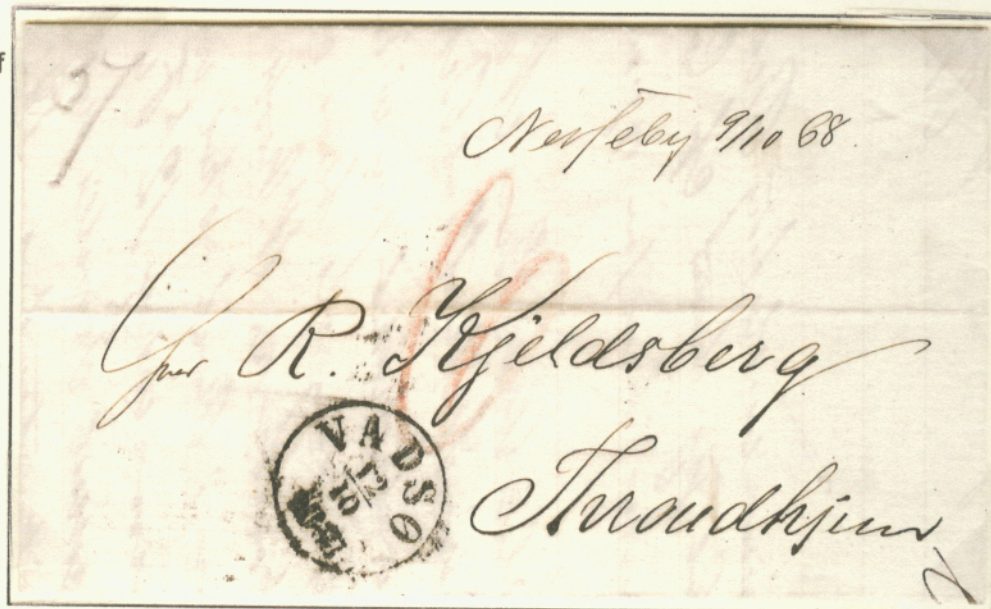 f
Nesseby 9/10 68.
6
Herr R. Kjeldsberg
VADSØ
12
10
Throndhjem